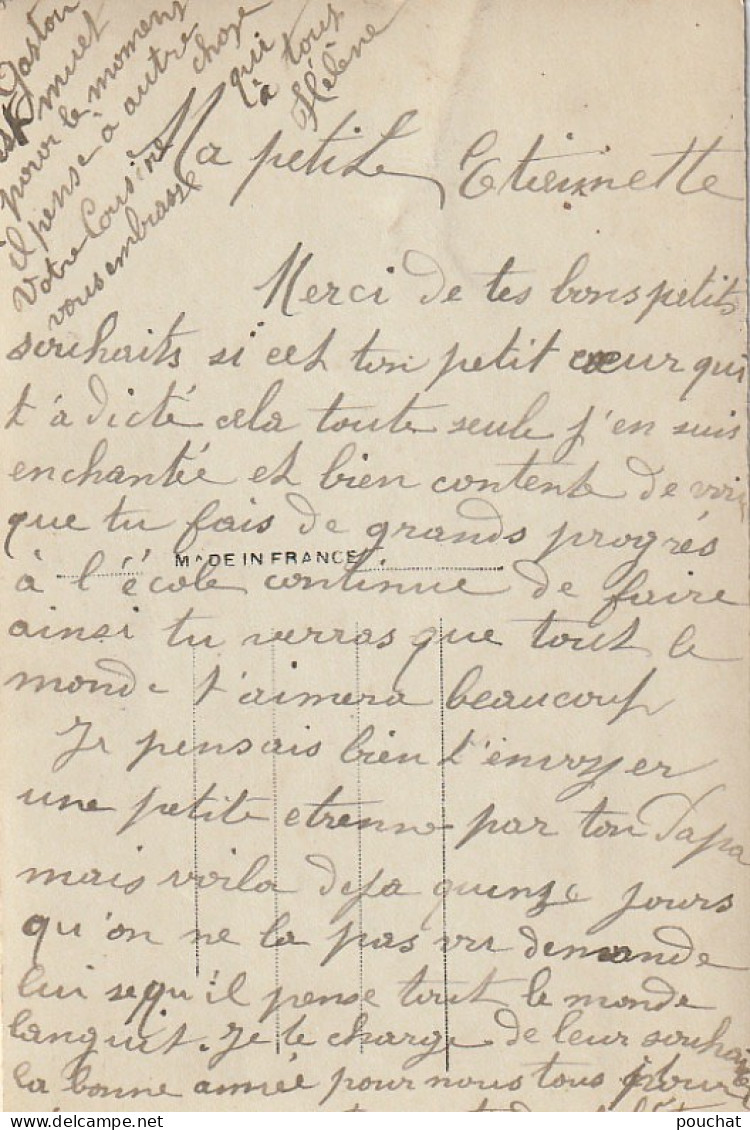 Gaston
est muet
pour le moment
il pense à autre chose
Votre Cousine qui
vous embrasse
à tous
Hélène
Ma petite Etiennette
Merci de tes bons petits
souhaits si cet ton petit cœur qui
t'a dicté cela toute seule j'en suis
enchantée et bien contente de voir
que tu fais de grands progrés
MADE IN FRANCE
à l'école continue de faire
ainsi tu verras que tout le
monde t'aimera beaucoup
Je pensais bien t'envoyer
une petite etrenne par ton Papa
mais voila deja quinze jours
qu'on ne la pas vu demande
lui se qu'il pense tout le monde
languit. Je te charge de leur souhaiter
la bonne année pour nous tous pour
pouchat